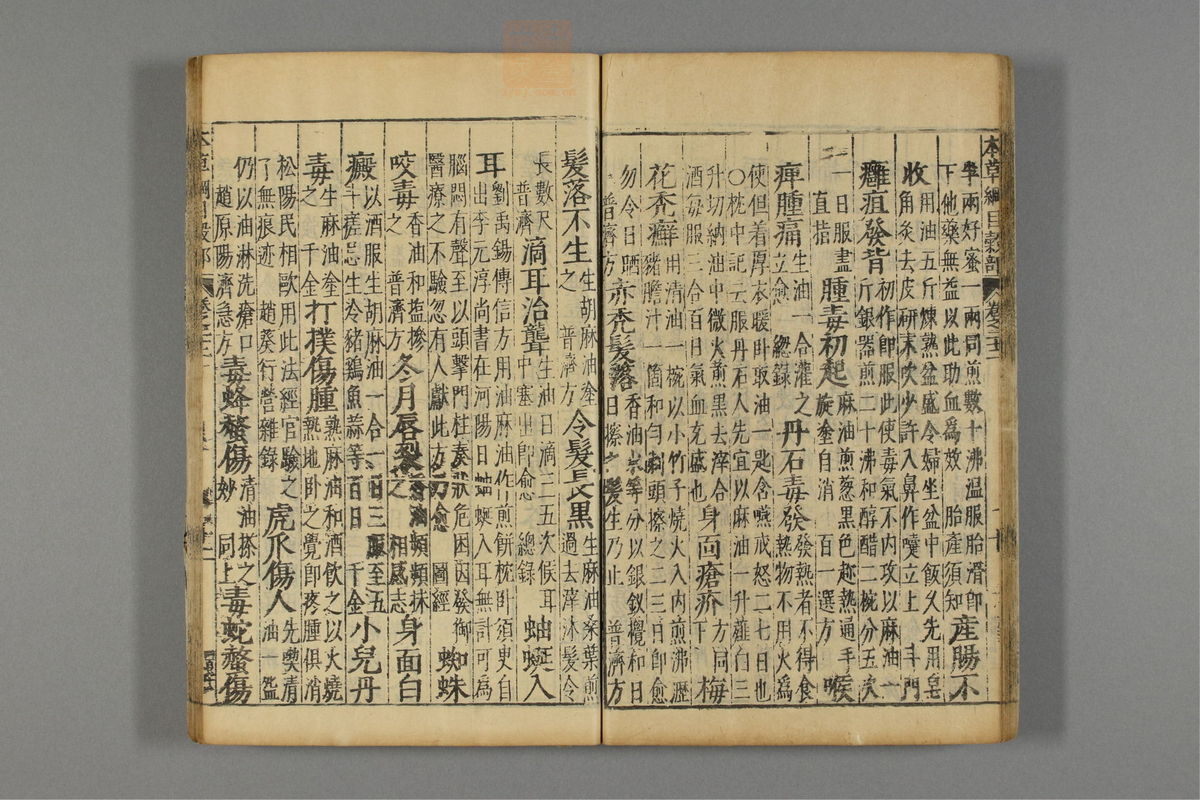 本草綱目穀部
半兩好蜜一兩同煎數十沸溫服胎滑即
下他藥無益以此助血爲效 胎產須知
産腸不
收
用油五斤煉熟盆盛令婦坐盆中飯久先用皂
角灸去皮研末吹少許入鼻作嚏立上 斗門
癰疽發背
初作即服此使毒氣不內攻以麻油一
斤銀器煎二十沸和醇醋二椀分五次
一日服盡
直指
腫毒初起
麻油煎葱黑色趂熱通手
旋塗自消 百一選方
喉
痺腫痛
生油一合灌之
立愈 總錄
丹石毒發
發熱者不得食
熱物不用火爲
使但着厚衣暖卧取油一匙含嚥戒怒二七日也
○枕中記云服丹石人先宜以麻油一升薤白三
升切納油中微火煎黑去滓合
酒每服三合百日氣血充盛也
身面瘡疥
方同
下
梅
花禿癬
用清油一椀以小竹子燒火入內煎沸瀝
猪膽汁一箇和勻剃頭擦之二三日即愈
勿令日晒
普濟方
赤禿髮落
香油水等分以銀釵攪和日
日擦之髮生乃止 普濟方
髮落不生
生胡麻油塗
之 普濟方
令髮長黑
生麻油桑葉煎
過去滓沐髮令
長數尺
普濟
滴耳治聾
生油日滴三五次候耳
中塞出即愈 總錄
蚰蜒入
耳
劉禹錫傳信方用油麻油作煎餅枕卧須臾自
出李元淳尚書在河陽日蚰蜒入耳無計可爲
腦悶有聲至以頭擊門柱奏狀危困因發御
醫療之不驗忽有人獻此方乃愈 圖經
蜘蛛
咬毒
香油和盐摻
之 普濟方
冬月唇裂
香油頻頻抹
之 相感志
身面白
癜
以酒服生胡麻油一合一日三服至五
斗瘥忌生冷猪鷄魚蒜等百日 千金
小兒丹
毒
生麻油塗
之 千金
打撲傷腫
熟麻油和酒飲之以火燒
熱地卧之覺即疼腫俱消
松陽民相毆用此法經官驗之
了無痕迹 趙葵行營雜錄
虎爪傷人
先喫清
油一盌
仍以油淋洗瘡口
趙原陽濟急方
毒蜂螫傷
清油搽之
妙 同上
毒蛇螫傷